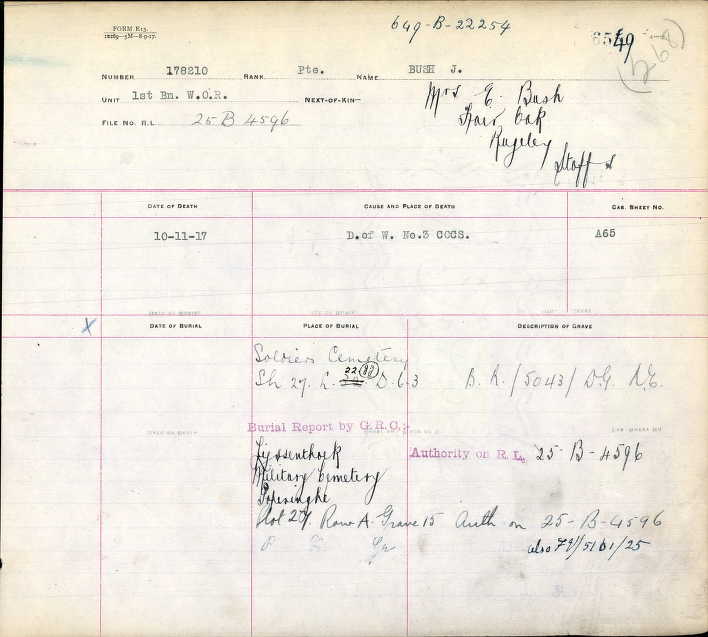 FORM E13.
649-B-22254
6549
(268)
NUMBER 178210 RANK Pte. NAME BUSH J.
UNIT 1st Bn. W.O.R. NEXT-OF-KIN—
Mrs E. Bush
Fair Oak
Rugeley
Staffs
FILE NO. R.L. 25 B 4596
DATE OF DEATH CAUSE AND PLACE OF DEATH CAS. SHEET NO.
10-11-17 D.of W. No.3 CCCS. A65
X DATE OF BURIAL PLACE OF BURIAL DESCRIPTION OF GRAVE
Soldiers Cemetery
Sh 27. L. 22 D. 6.3 B. R. /5043/ D.G. R.E.
Burial Report by G.R.O:-
Lijssenthoek Authority on R.L. 25-B-4596
Military Cemetery
Poperinghe
Plot 27. Row A. Grave 15 Auth on 25-B-4596
also